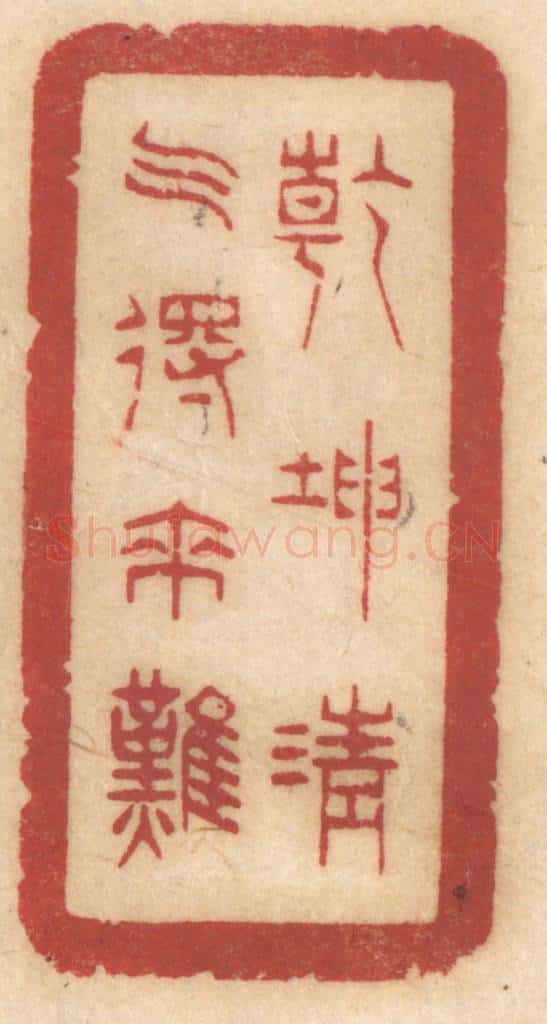 乾坤清
气得來難
Shufawang.CN